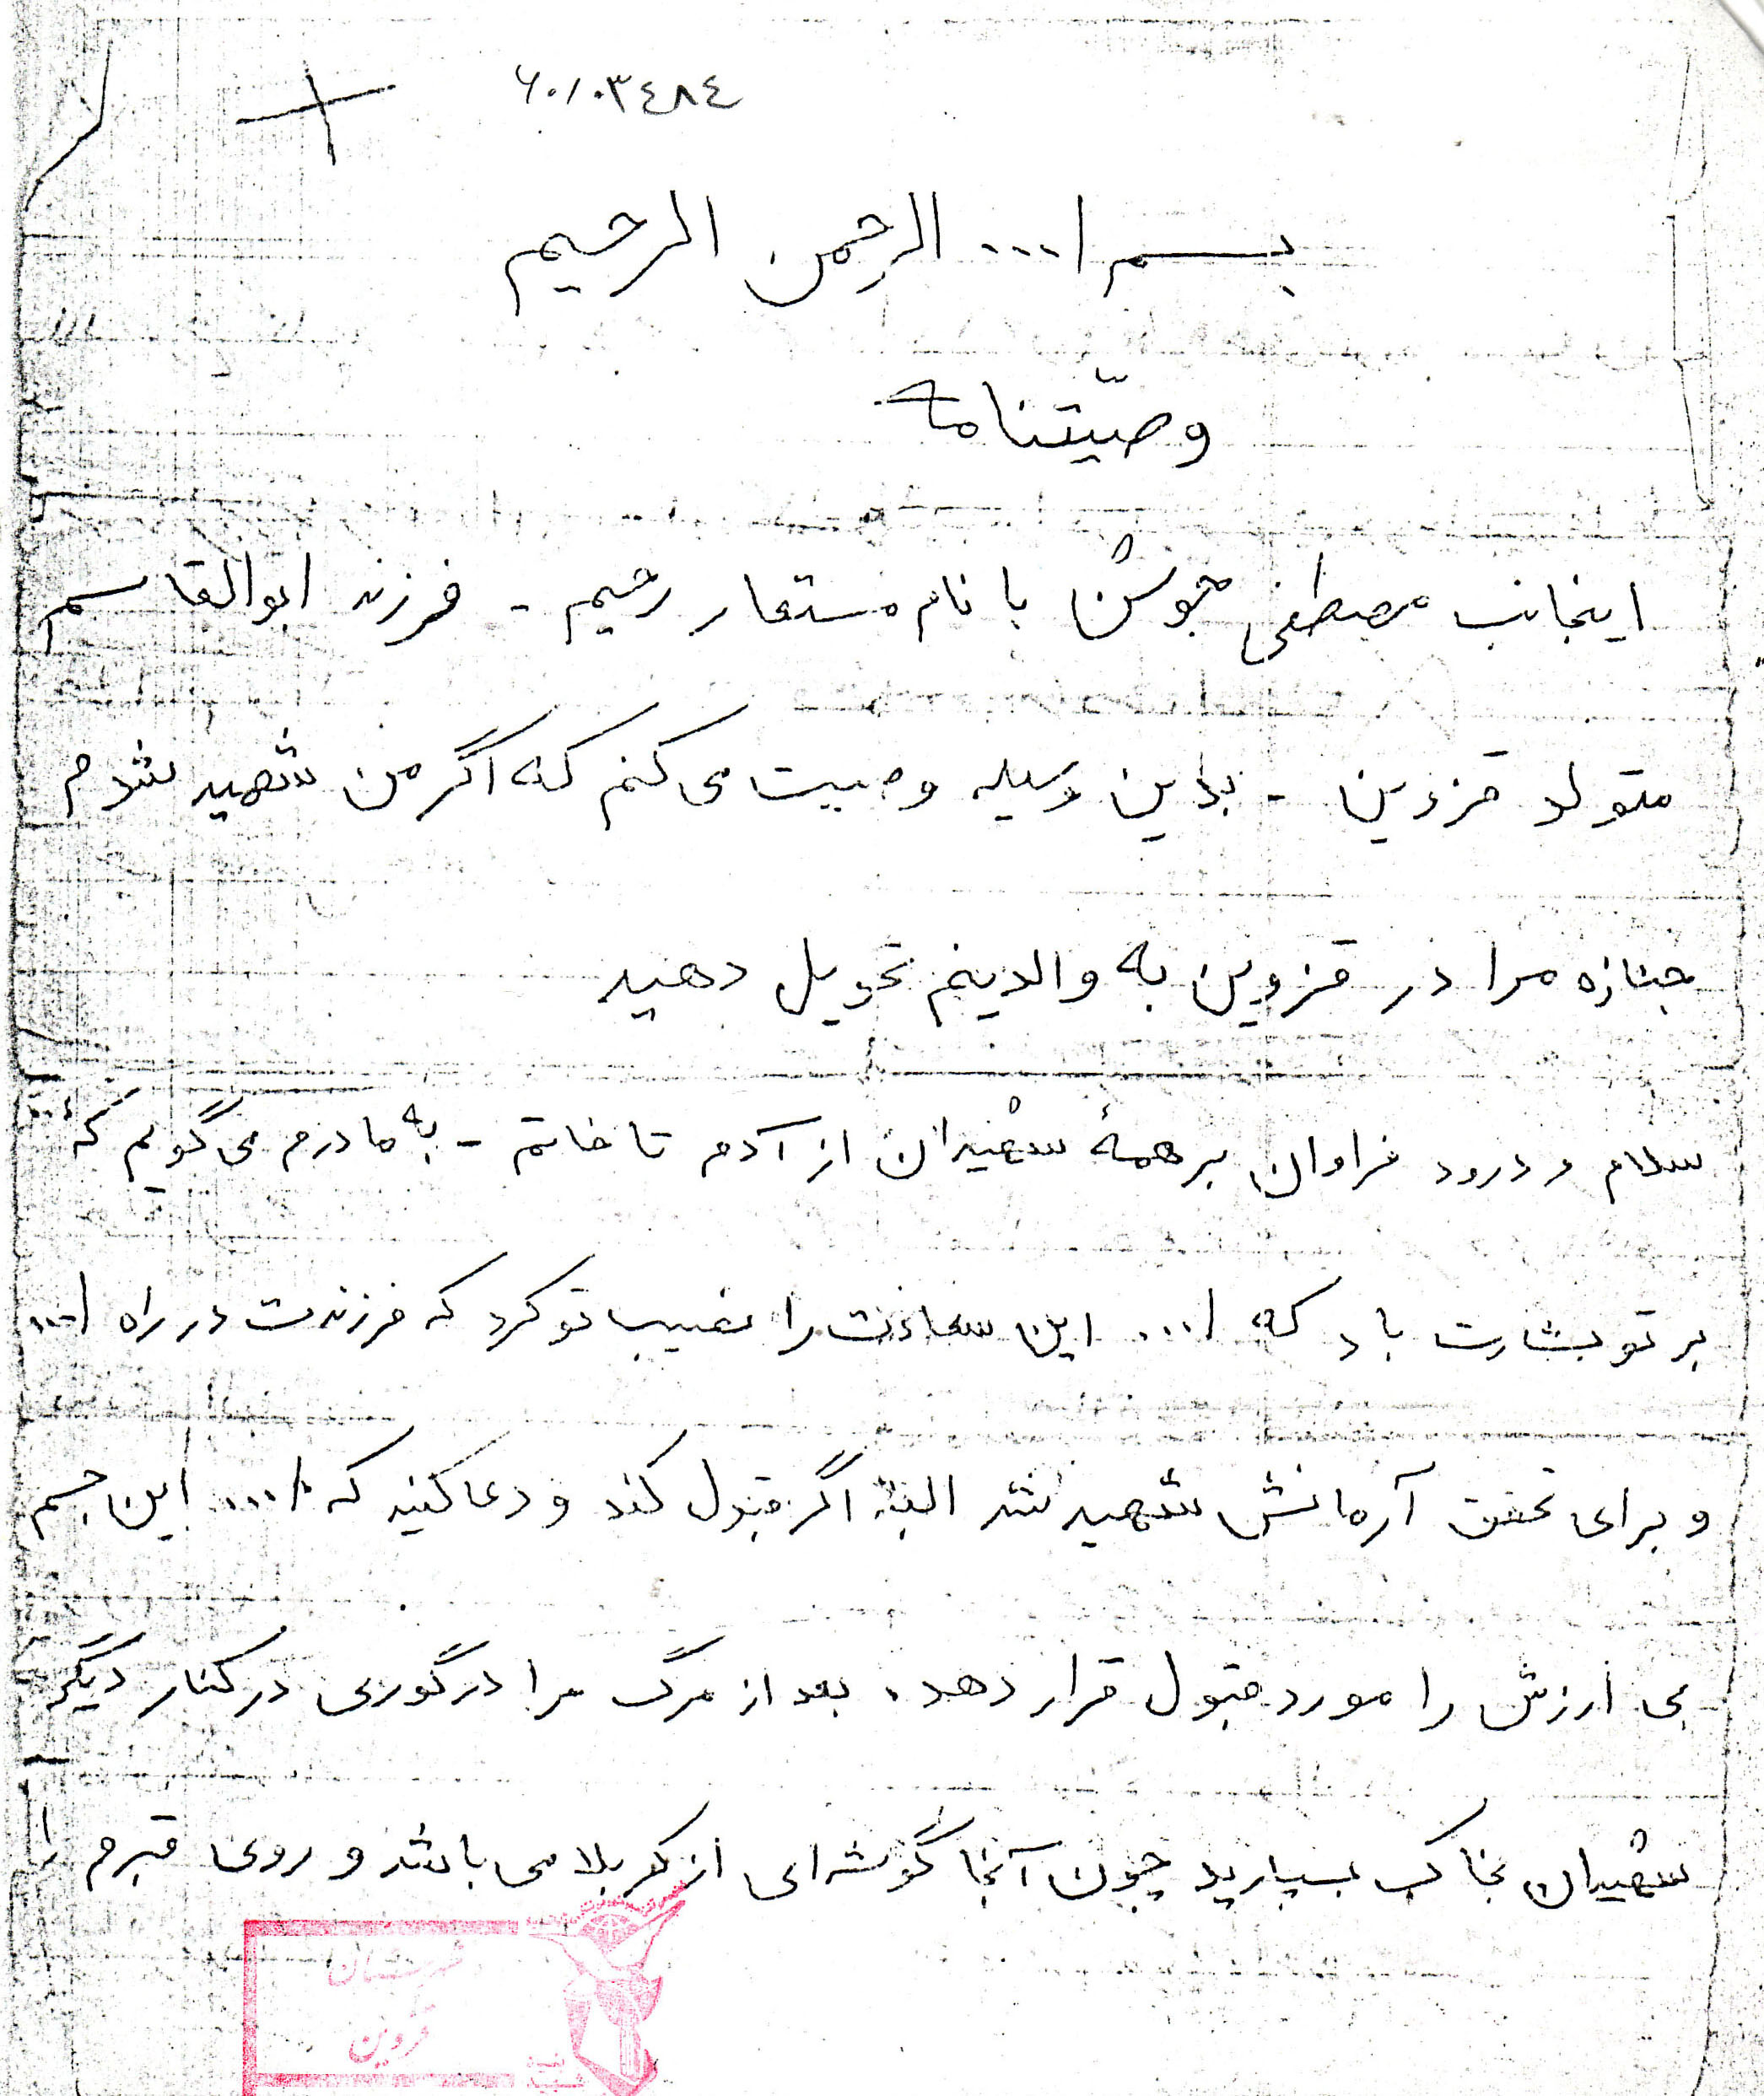 ۶۰/۰۳۴۸۴
بسم ا... الرحمن الرحیم
وصیّتنامه
اینجانب مصطفی جوشن با نام مستعار رحیم - فرزند ابوالقاسم
متولد قزوین - بداین وسیله وصیت می کنم که اگر من شهید شدم
جنازه مرا در قزوین به والدینم تحویل دهید
سلام و درود فراوان بر همهٔ شهیدان از آدم تا خاتم - به مادرم می گویم که
بر تو بشارت باد که ا... این سعادت را نصیب تو کرد که فرزندت در راه ا...
و برای تحقق آرمانش شهید شد البته اگر قبول کند و دعا کنید که ا... این جسم
بی ارزش را مورد قبول قرار دهد، بعد از مرگ مرا در گوری در کنار دیگر
شهیدان بخاک بسپارید چون آنجا گوشه‌ای از کربلا می باشد و روی قبرم را
شهرستان
قزوین